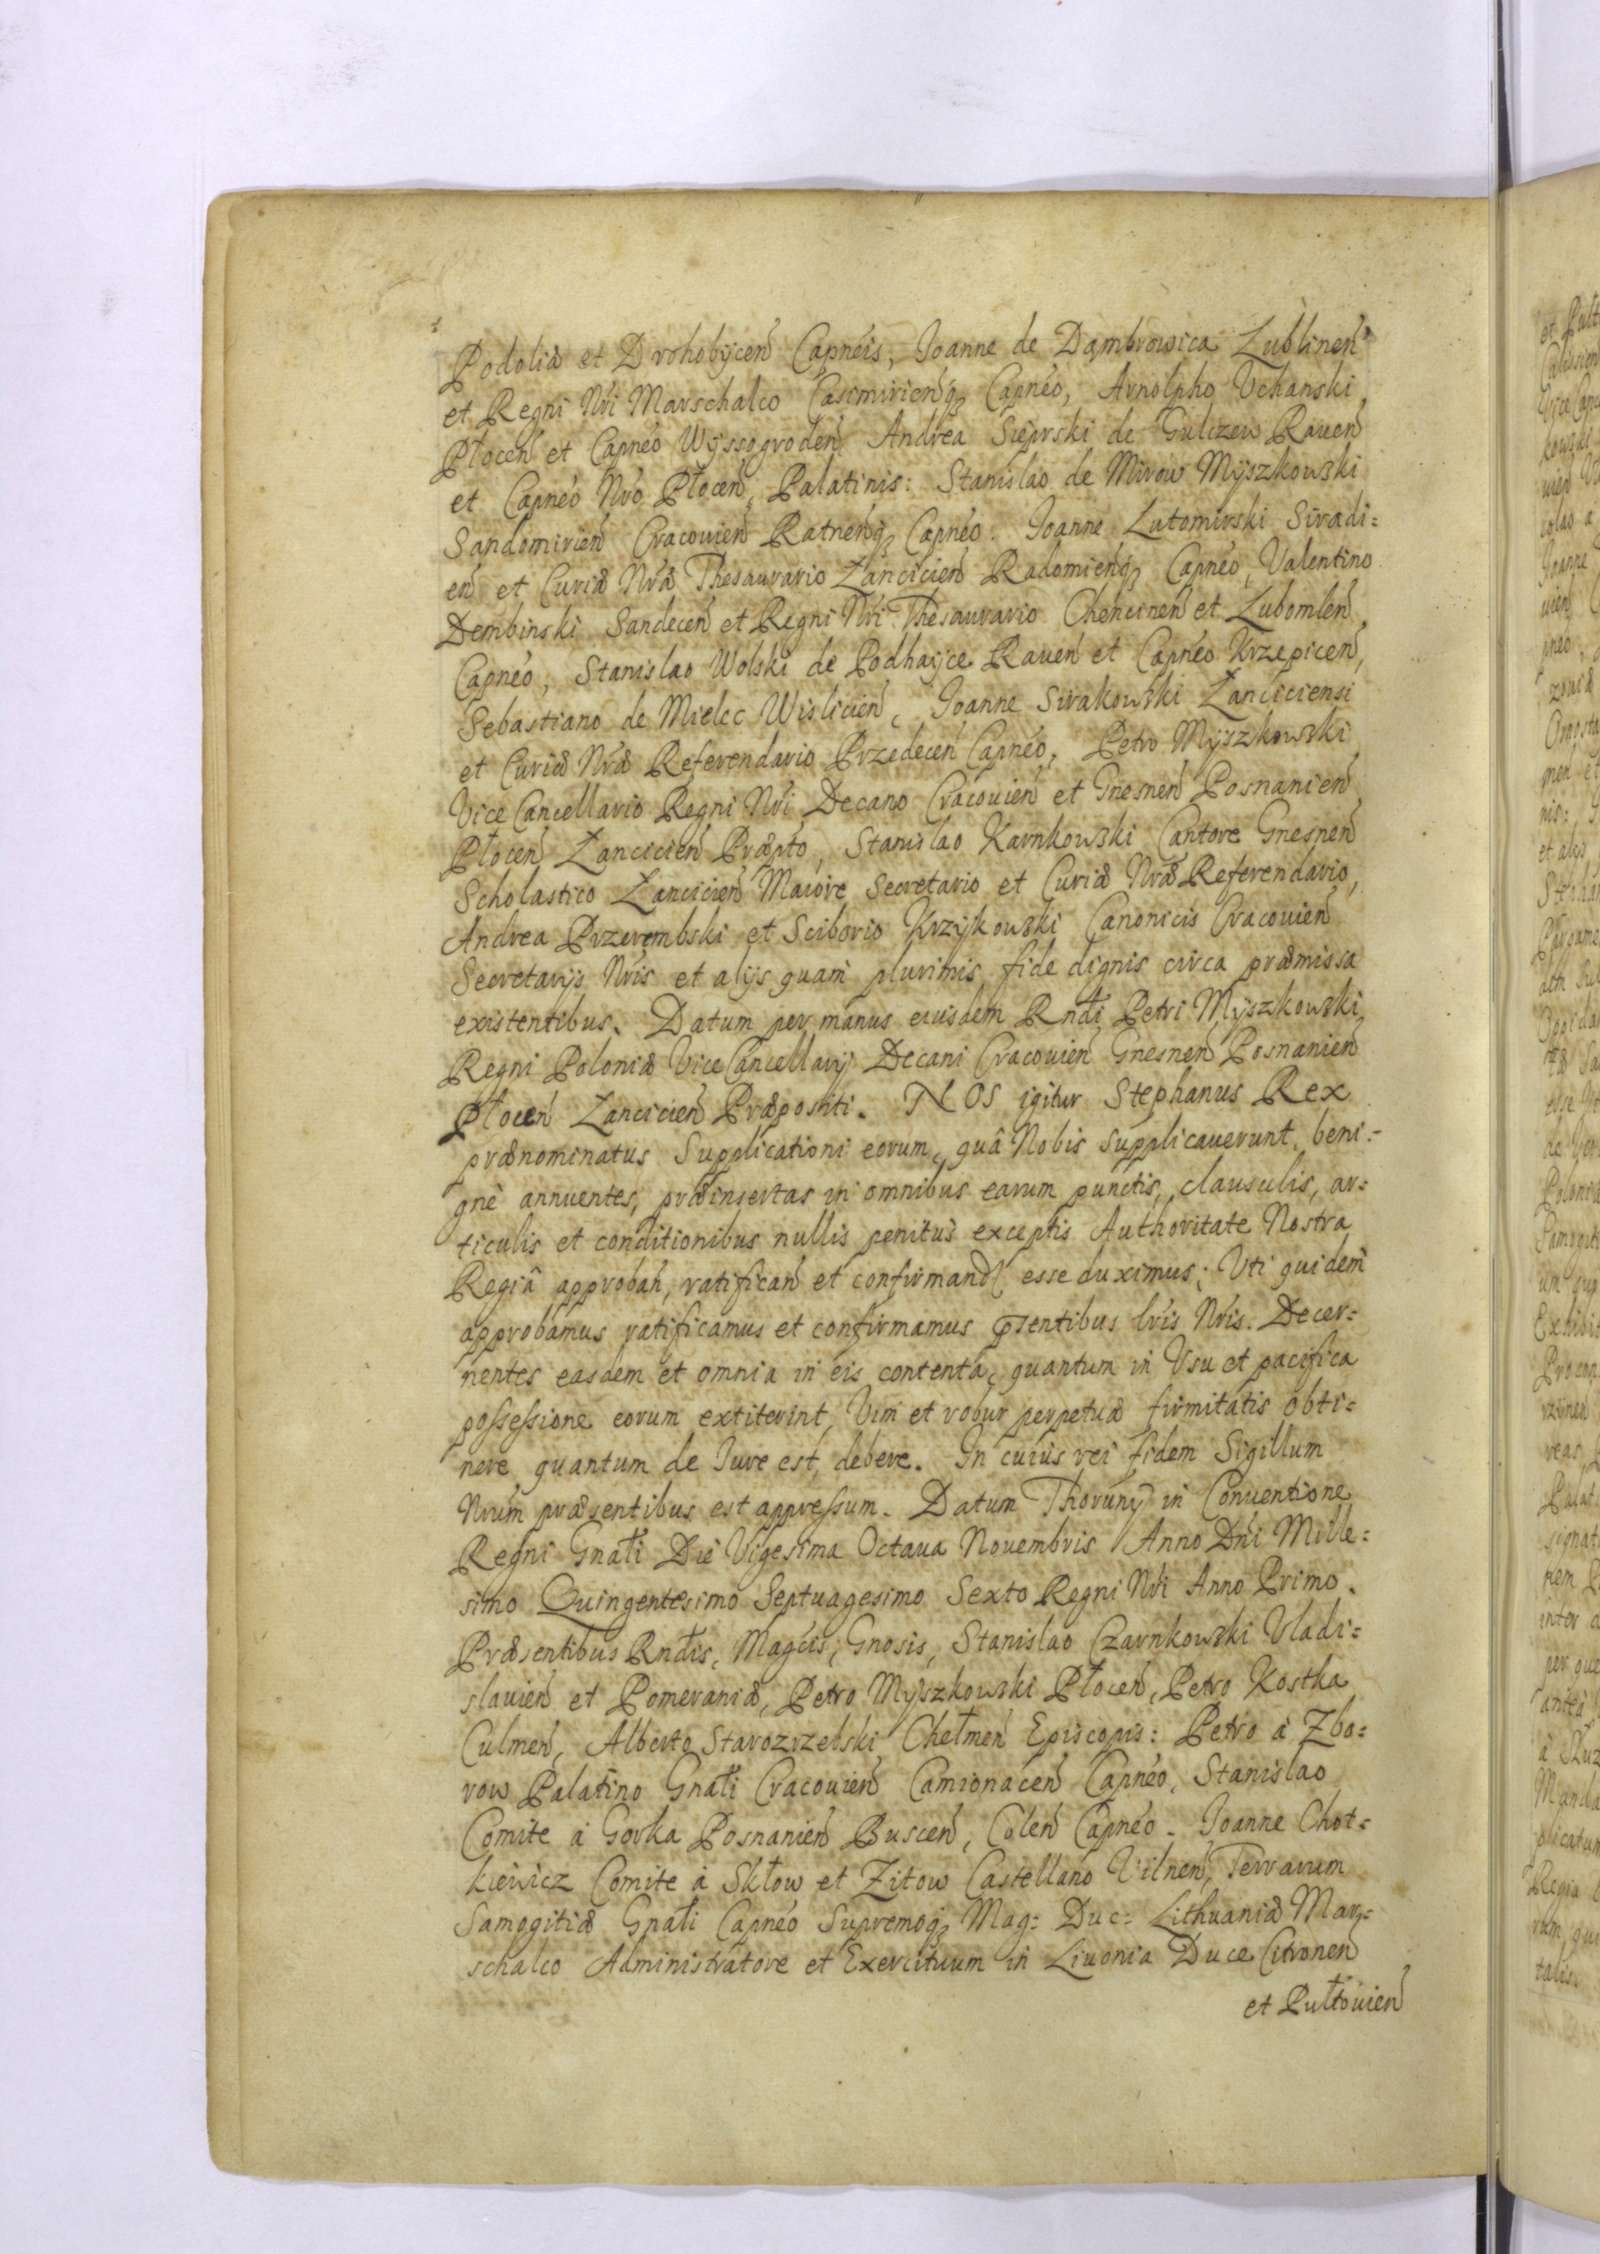 Podoliæ et Drohobÿcen̄ Capnéis, Joanne de Dąmbrowica Lublinen̄
et Regni Nri Marschalco Casimirien̄q₃ Capnéo, Arnolpho Vchanski
Płocen̄ et Capnéo Wÿssogroden̄ Andrea Sieprski de Gulczew Rauen̄
et Capnéo Nro Płocen̄, Palatinis: Stanislao de Mirow Mÿszkowski
Sandomirien̄ Cracouien̄ Ratnen̄q₃ Capnéo. Joanne Lutomirski Siradi=
en̄ et Curiæ Nræ Thesaurario Łancicien̄ Radomien̄q₃ Capnéo, Valentino
Dembinski Sandecen̄ et Regni Nri Thesaurario Chencinen̄ et Lubomlen̄
Capnéo, Stanislao Wolski de Podhaÿce Rauen̄ et Capnéo Krzepicen̄,
Sebastiano de Mielec Wislicien̄, Joanne Sirakowski Łanciciensi
et Curiæ Nræ Referendario Przedecen̄ Capnéo, Petro Mÿszkowski
Vice Cancellario Regni Nri Decano Cracouien̄ et Gnesnen̄ Posnanien̄
Płocen̄ Łancicien̄ Præpto, Stanislao Karnkowski Cantore Gnesnen̄
Scholastico Łancicien̄ Maiore Secretario et Curiæ Nræ Referendario,
Andrea Przerembski et Sciborio Krzÿkowski Canonicis Cracouien̄
Secretarijs Nris et alijs quam plurimis fide dignis circa præmissa
existentibus. Datum per manus eiusdem Rndi Petri Mÿszkowski
Regni Poloniæ Vice Cancellarij Decani Cracouien̄ Gnesnen̄ Posnanien̄
Płocen̄ Łancicien̄ Præpositi. NOS igitur Stephanus Rex
prænominatus Supplicationi eorum, quâ Nobis supplicauerunt, beni=
gnè annuentes, præinsertas in omnibus earum punctis, clausulis, ar=
ticulis et conditionibus nullis penitus exceptis Authoritate Nostra
Regiâ approban̄, ratifican̄ et confirmand esse duximus; Vti quidem
approbamus ratificamus et confirmamus pṙsentibus lris Nris. Decer=
nentes easdem et omnia in eis contenta, quantum in Vsu et pacifica
possessione eorum extiterint, Vim et robur perpetuæ firmitatis obti=
nere quantum de Iure est, debere. In cuius rei fidem Sigillum
Nrum præsentibus est appressum. Datum Thorunÿ in Conuentione
Regni Gnałi Die Vigesima Octaua Nouembris Anno Dni Mille=
simo Quingentesimo Septuagesimo Sexto Regni Nri Anno Primo.
Præsentibus Rndis, Magcis, Gnosis, Stanislao Czarnkowski Vladi=
slauien̄ et Pomeraniæ, Petro Mÿszkowski Płocen̄, Petro Kostka
Culmen̄, Alberto Starozrzebski Chełmen̄ Episcopis: Petro à Zbo=
row Palatino Gnałi Cracouien̄ Camionacen̄ Capnéo, Stanislao
Comite à Gorka Posnanien̄ Buscen̄, Colen̄ Capnéo. Joanne Chot=
kiewicz Comite à Skłow et Zitow Castellano Vilnen̄, Terrarum
Samogitiæ Gnałi Capnéo Supremoq₃ Mag= Duc= Lithuaniæ Mar=
schalco Administratore et Exercituum in Liuonia Duce Citronen̄
et Pułtouien̄